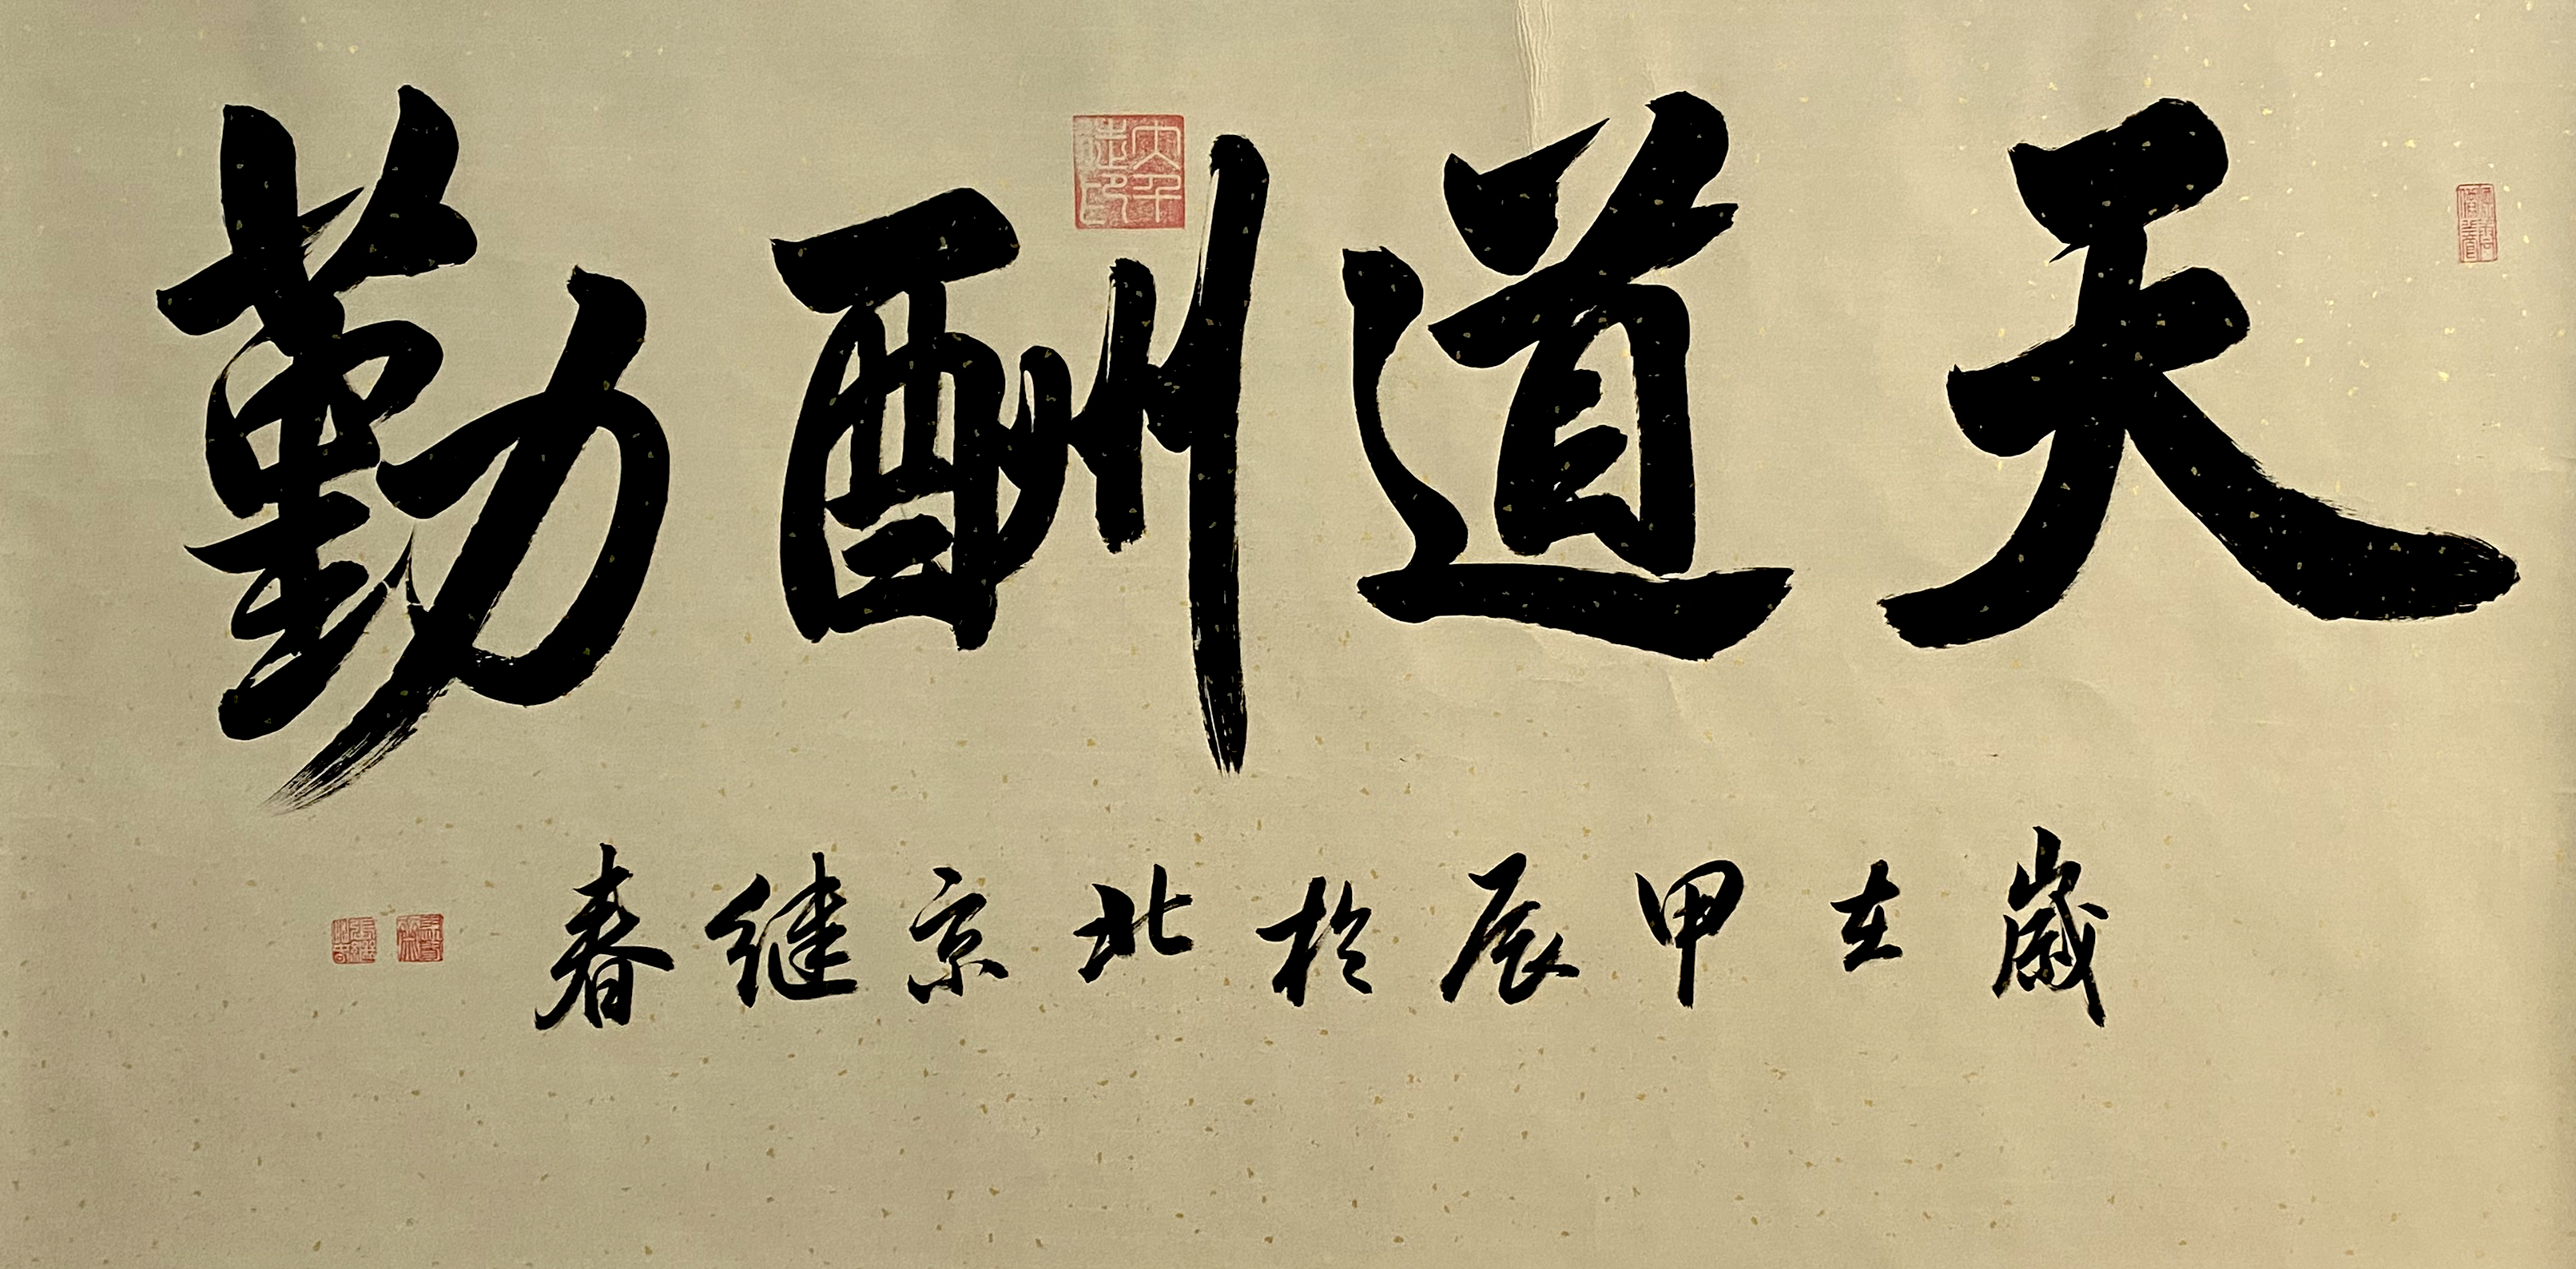 天道酬勤
歲在甲辰於北京继春